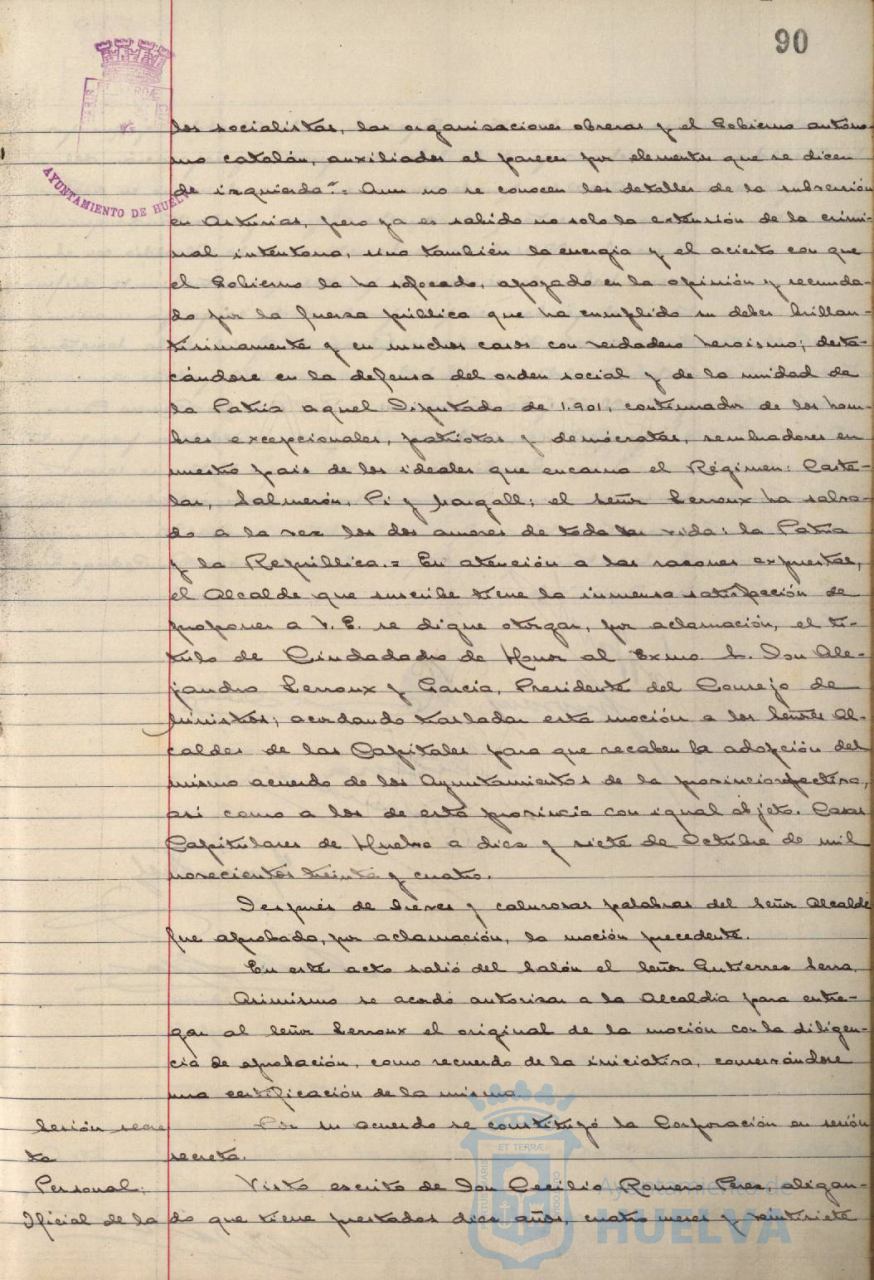 90
AYUNTAMIENTO DE HUELVA
los socialistas, las organisaciones obreras y el Gobierno autóno-
mo catalán, auxiliados al parecer por elementos que se dicen
de izquierda".= Aun no se conocen los detalles de la subversión
en Asturias, pero ya es sabido no solo la extensión de la crimi-
nal intentona, sino también la energia y el acierto con que
el Gobierno la ha sofocado, apoyado en la opinión y secunda-
do por la fuerza pública que ha cumplido su deber brillan-
tisimamente y en muchos casos con verdadero heroismo; desta-
cándose en la defensa del orden social y de la unidad de
la Patria aquel Diputado de 1.901, continuador de los hom-
bres excepcionales, patriotas y demócratas, sembradores en
nuestro pais de los ideales que encarna el Régimen: Caste-
lar, Salmerón, Pi y Margall; el Señor Lerroux ha salva-
do a la vez los dos amores de toda su vida: la Patria
y la República.= En atención a las razones expuestas,
el Alcalde que suscribe tiene la inmensa satisfacción de
proponer a V. E. se digne otorgar, por aclamación, el ti-
tulo de Ciudadadno de Honor al Exmo. S. Don Ale-
jandro Lerroux y Garcia, Presidente del Consejo de
Ministros; acordando trasladar esta moción a los Señores Al-
caldes de las Capitales para que recaben la adopción del
mismo acuerdo de los Ayuntamientos de la provincia respectiva,
asi como a los de esta provincia con igual objeto. Casas
Capitulares de Huelva a diez y siete de Octubre de mil
novecientos treinta y cuatro.
Después de breves y calurosas palabras del Señor Alcalde
fue aprobada, por aclamación, la moción precedente.
En este acto salió del Salón el Señor Gutierrez Serra.
Asimismo se acordó autorizar a la Alcaldia para entre-
gar al Señor Lerroux el original de la moción con la diligen-
cia de aprobación, como recuerdo de la iniciativa, conservándose
una certificación de la misma.
Sesión secre
ta
Por su acuerdo se constituyó la Corporación en sesión
secreta.
Personal:
Oficial de la
Visto escrito de Don Cecilio Romero Perez, alegan-
do que tiene prestados diez años, cuatro meses y veintisiete
Ayuntamiento de
HUELVA